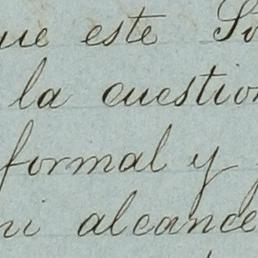 que este
la cuestion
formal y
mi alcance